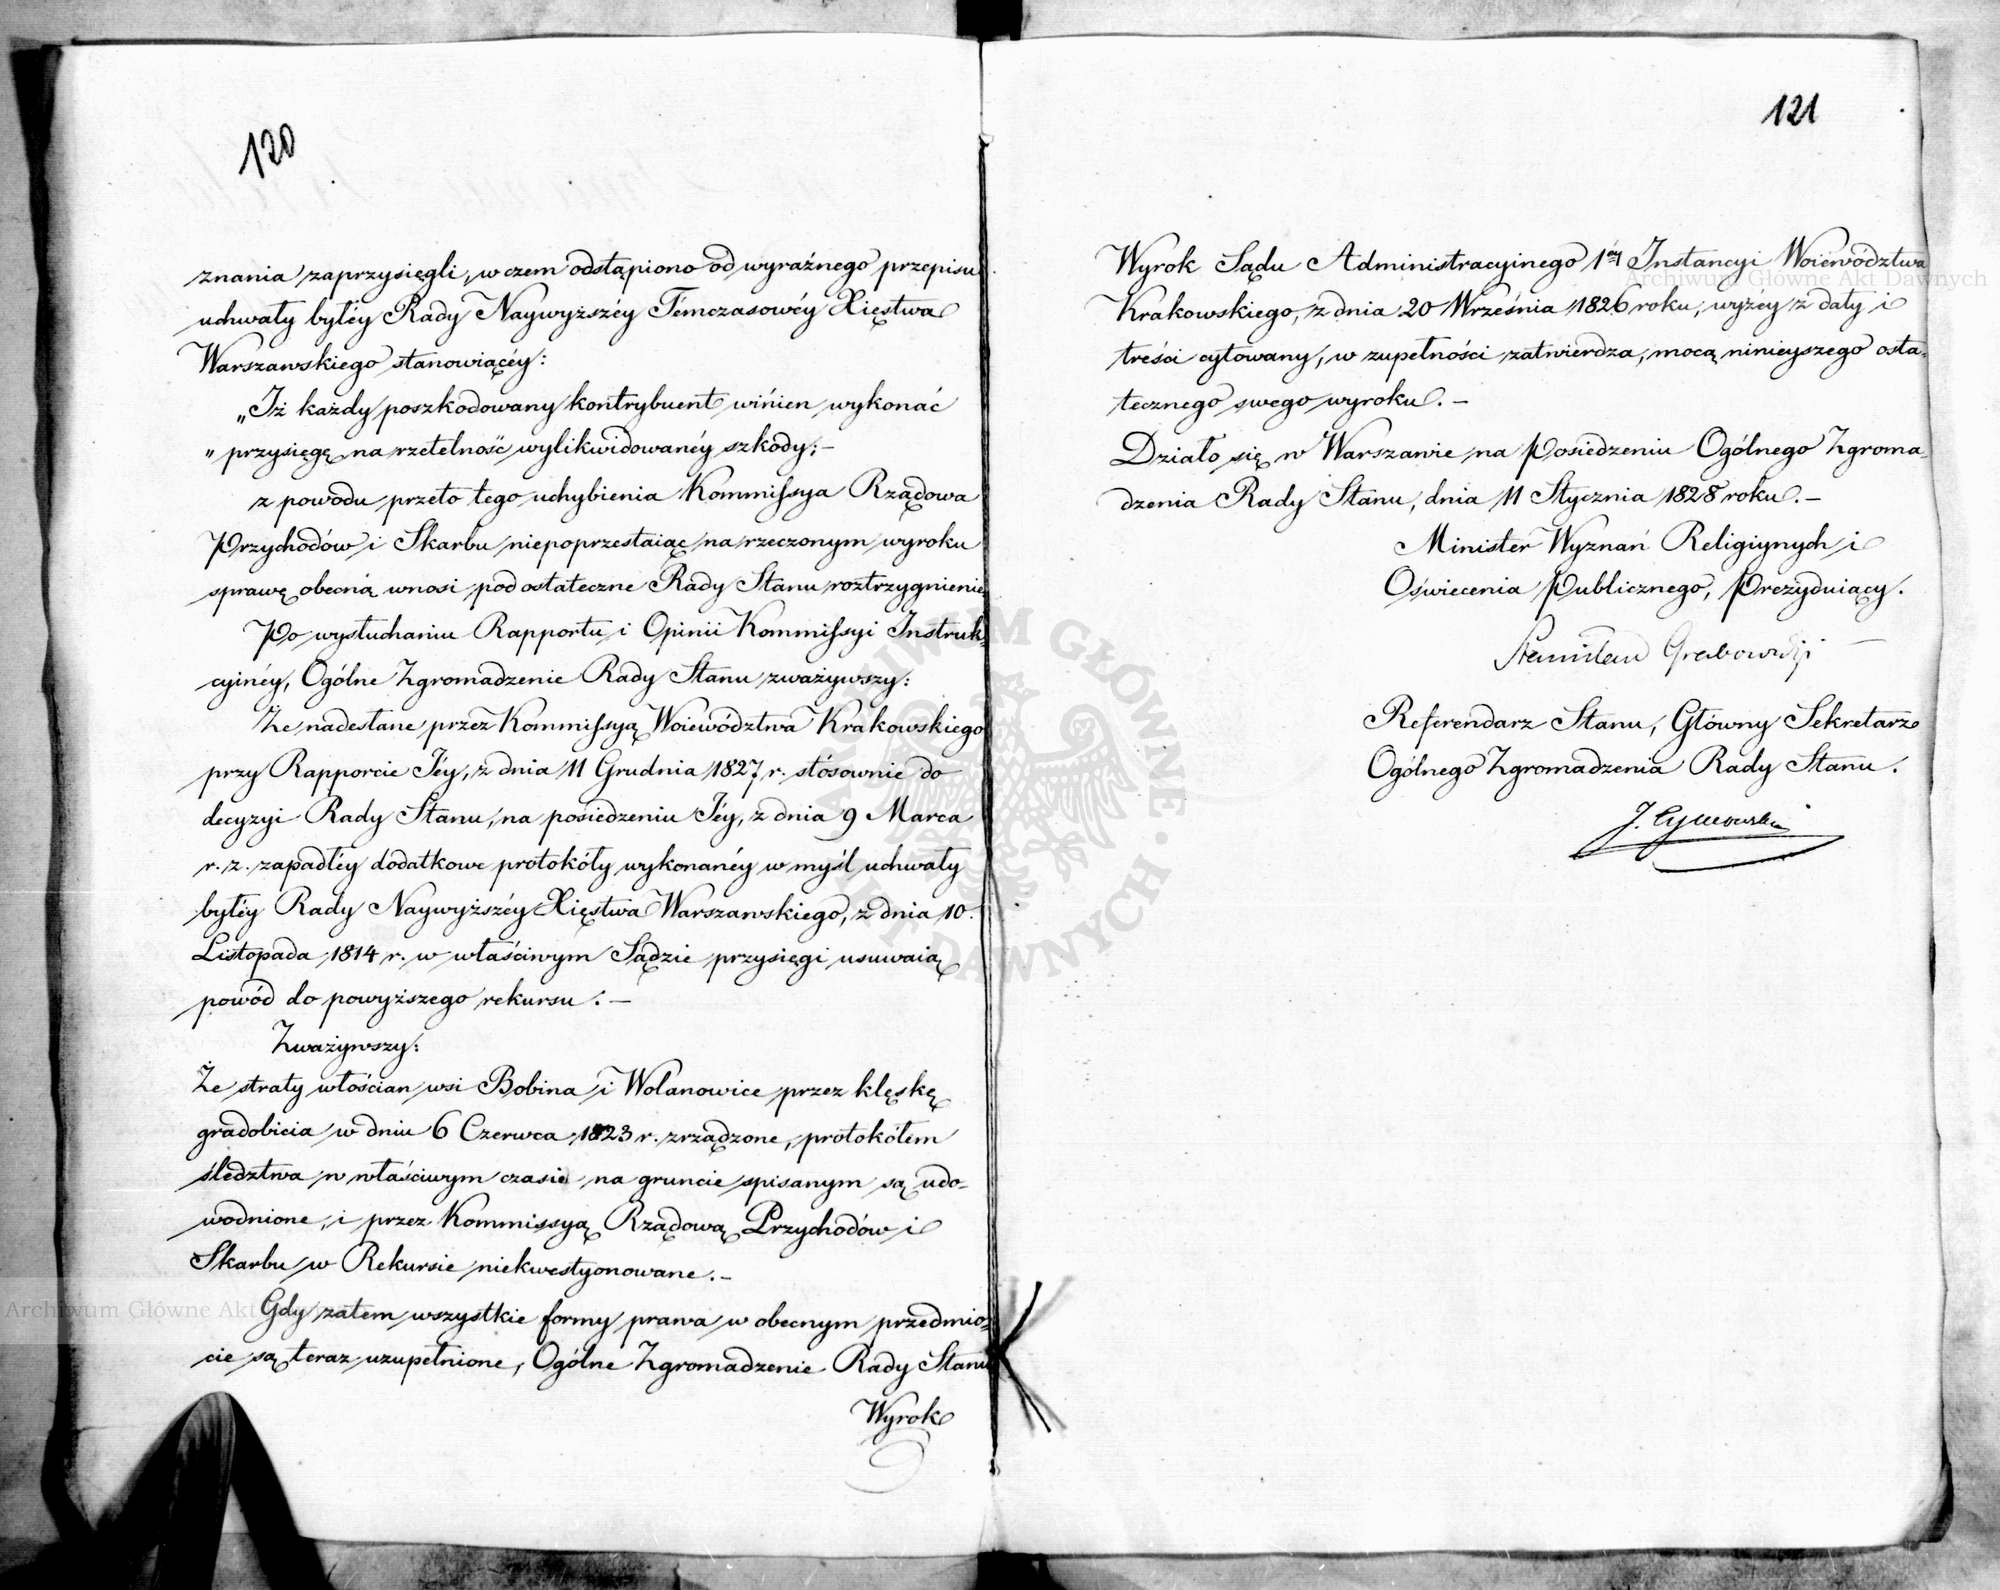 120
znania zaprzysięgli, w czem odstąpiono od wyraźnego przepisu
uchwały byłéy Rady Naywyższéy Témczasowéy Xięstwa
Warszawskiego stanowiącéy:
„Iż każdy poszkodowany kontrybuent winien wykonać
„przysięgę na rzetelność wylikwidowanéy szkody;–
z powodu przeto tego uchybienia Kommissya Rządowa
Przychodów i Skarbu niepoprzestaiąc na rzeczonym wyroku
sprawę obecną wnosi pod ostateczne Rady Stanu roztrzygnienie
Po wysłuchaniu Rapportu i Opinii Kommissyi Instruk-
cyinéy, Ogólne Zgromadzenie Rady Stanu zważywszy:
Że nadesłane przez Kommissyą Woiewództwa Krakowskiego
przy Rapporcie Jéy, z dnia 11 Grudnia 1827 r. stósownie do
decyzyi Rady Stanu, na posiedzeniu Jéy, z dnia 9 Marca
r. z. zapadłéy dodatkowe protokóły wykonanéy w myśl uchwały
byłéy Rady Naywyższéy Xięstwa Warszawskiego, z dnia 10.
Listopada 1814 r. w właściwym Sądzie przysięgi usuwaią
powód do powyższego rekursu. –
Zważywszy:
Że straty włościan wsi Bobina i Wolanowice przez klęskę
gradobicia w dniu 6 Czerwca 1823 r. zrządzone, protokółem
śledztwa w właściwym czasie na gruncie spisanym są udo-
wodnione, i przez Kommissyą Rządową Przychodów i
Skarbu w Rekursie niekwestyonowane. –
Gdy zatem wszystkie formy prawa w obecnym przedmio-
cie są teraz uzupełnione, Ogólne Zgromadzenie Rady Stanu
Wyrok
121
Wyrok Sądu Administracyinego 1éy Instancyi Woiewództwa
Krakowskiego, z dnia 20 Września 1826 roku, wyżéy z daty i
treści cytowany, w zupełności zatwierdza, mocą ninieyszego osta-
tecznego swego wyroku. –
Działo się w Warszawie na Posiedzeniu Ogólnego Zgroma-
dzenia Rady Stanu, dnia 11 Stycznia 1828 roku. –
Minister Wyznań Religiynych i
Oświecenia Publicznego, Prezyduiący.
Stanisław Grabowski
Referendarz Stanu, Główny Sekretarz
Ogólnego Zgromadzenia Rady Stanu.
J. Tymowski
Archiwum Główne Akt Dawnych
ARCHIWUM GŁÓWNE AKT DAWNYCH
Archiwum Główne Akt